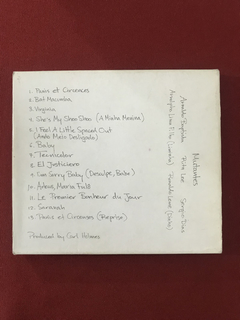 1. Panis et Circenses
2. Bat Macumba
3. Virginia
4. She's My Shoo Shoo (A Minha Menina)
5. I Feel A Little Spaced Out
(Ando Meio Desligado)
6. Baby
7. Tecnicolor
8. El Justiciero
9. I'm Sorry Baby (Desculpe, Babe)
10. Adeus, Maria Fulô
11. Le Premier Bonheur du Jour
12. Saravah
13. Panis et Circenses (Reprise)
Produced by Carl Holmes
Mutantes
Arnaldo Baptista Rita Lee Sergio Dias
Arnolpho Lima Filho (Liminha) Ronaldo Leme (Dinho)